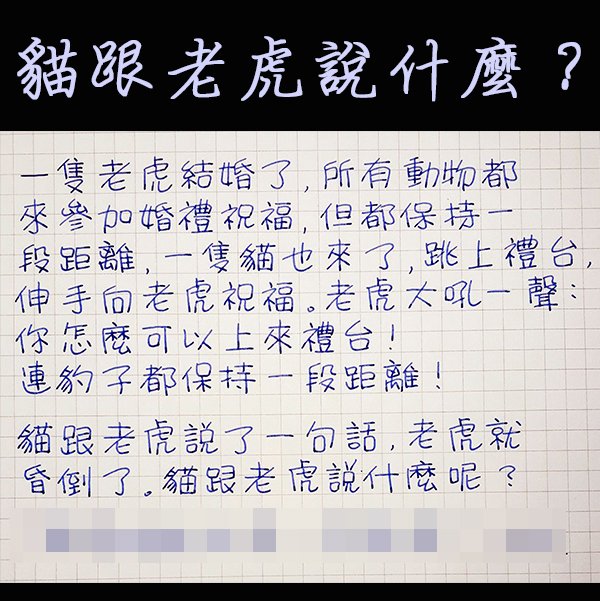 貓跟老虎說什麼？
一隻老虎結婚了，所有動物都
來參加婚禮祝福，但都保持一
段距離，一隻貓也來了，跳上禮台，
伸手向老虎祝福。老虎大吼一聲：
你怎麼可以上來禮台！
連豹子都保持一段距離！
貓跟老虎說了一句話，老虎就
昏倒了。貓跟老虎說什麼呢？